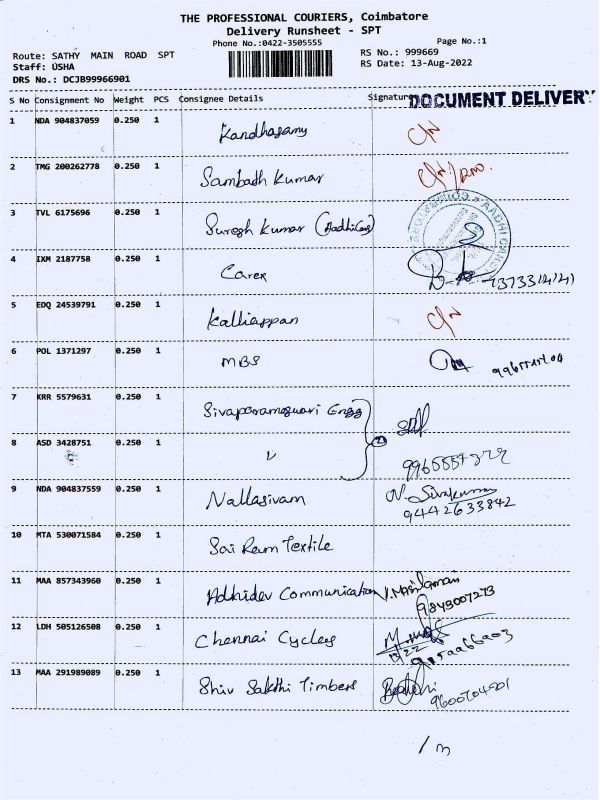 THE PROFESSIONAL COURIERS, Coimbatore
Delivery Runsheet - SPT
Phone No.:0422-3505555 Page No.:1
Route: SATHY MAIN ROAD SPT RS No.: 999669
Staff: USHA RS Date: 13-Aug-2022
DRS No.: DCJB99966901
S No Consignment No Weight PCS Consignee Details Signature DOCUMENT DELIVERY
1 NDA 904837059 0.250 1 Kandhasamy C/N
2 TMG 200262778 0.250 1 Sambath Kumar C/N
3 TVL 6175696 0.250 1 Suresh Kumar (Aadhi Cars)
4 IXM 2187758 0.250 1 Carex
5 EDQ 24539791 0.250 1 Kalliappan C/N
6 POL 1371297 0.250 1 MBS
7 KRR 5579631 0.250 1 Sivaparameswari Engg
8 ASD 3428751 0.250 1 (2)
9 NDA 904837559 0.250 1 Nallasivam N. Sivakumar
9442633842
10 MTA 530071584 0.250 1 Sai Ram Textile
11 MAA 857343960 0.250 1 Adhidev Communication
9843007273
12 LDH 505126508 0.250 1 Chennai Cycles
13 MAA 291989089 0.250 1 Shiv Sakthi Timbers